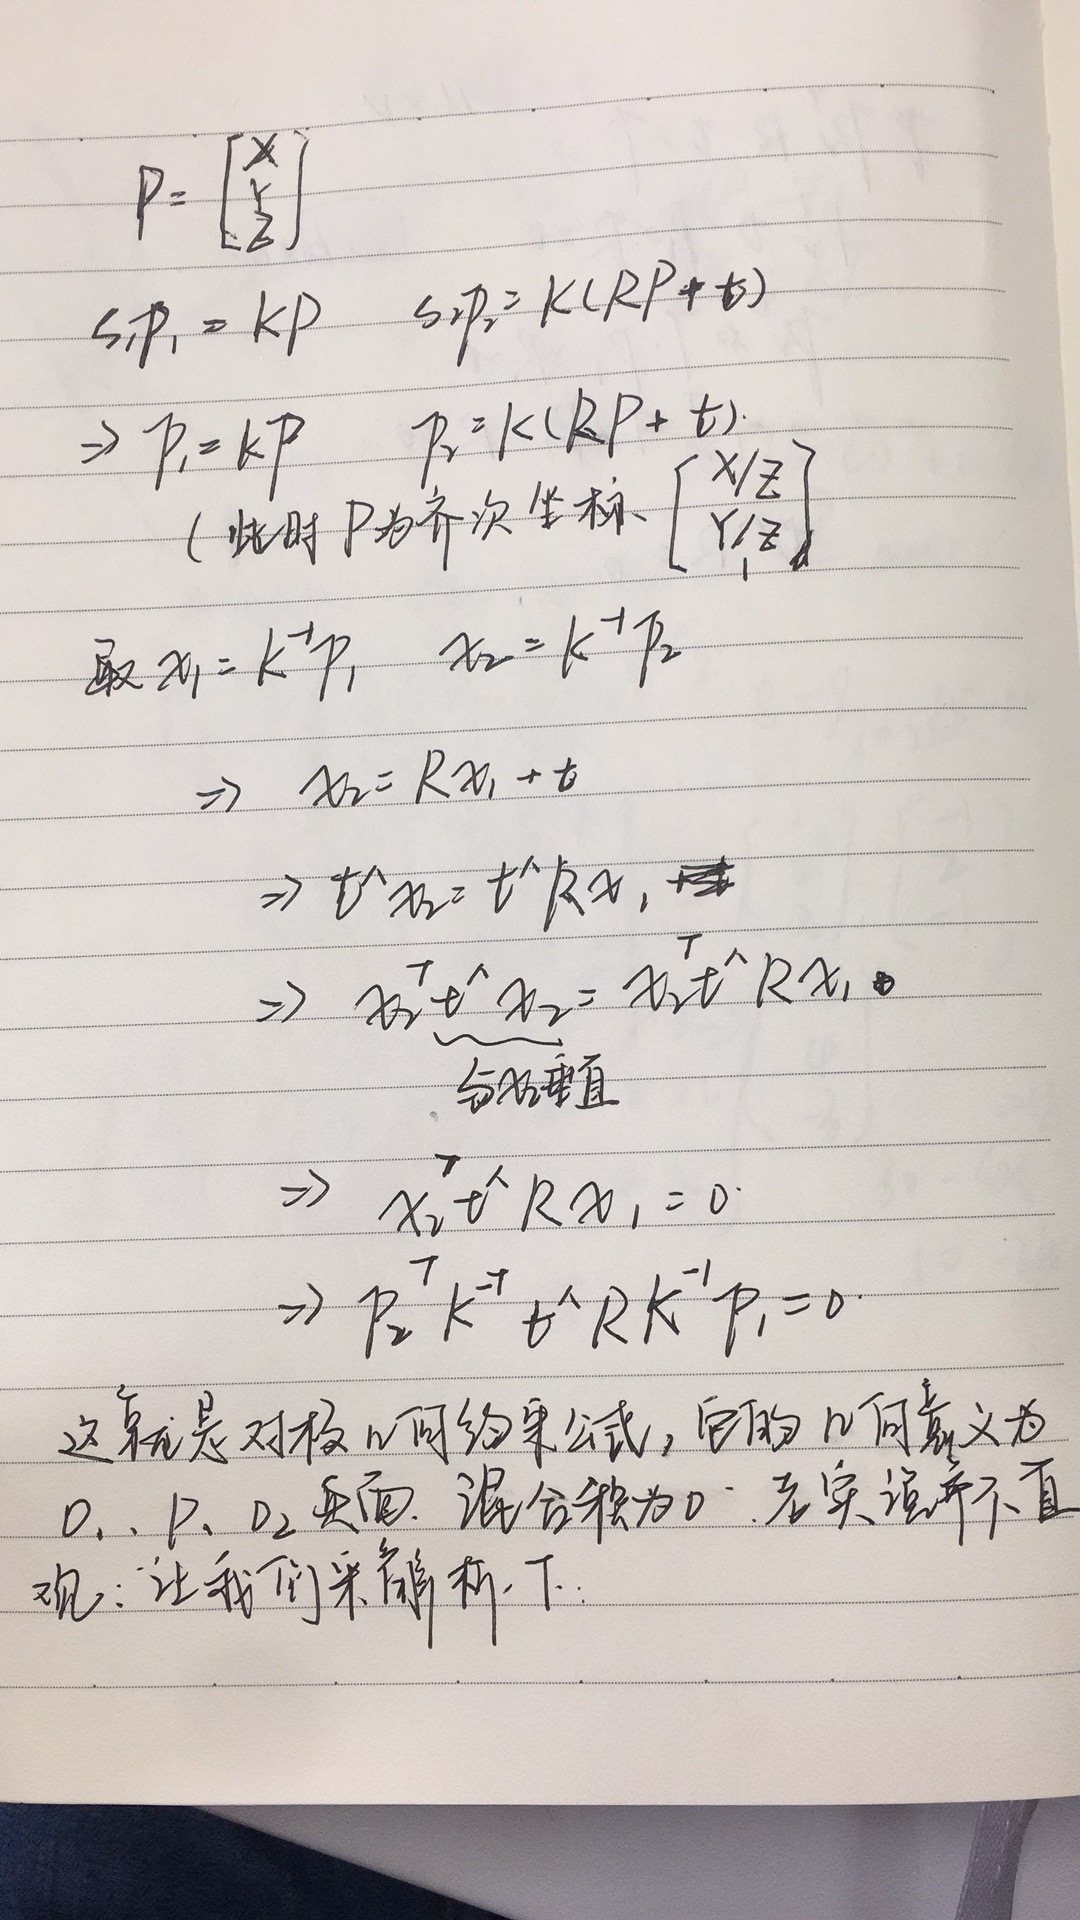 P = [X Y Z]
s₁p₁ = KP  s₂p₂ = K(RP + t)
⇒ p₁ = KP  p₂ = K(RP + t).
(此时 P为齐次坐标、[X/Z Y/Z 1]
取 x₁ = K⁻¹p₁  x₂ = K⁻¹p₂
⇒ x₂ = Rx₁ + t
⇒ t^x₂ = t^Rx₁
⇒ x₂ᵀt^x₂ = x₂ᵀt^Rx₁
与x₂垂直
⇒ x₂ᵀt^Rx₁ = 0.
⇒ p₂ᵀK⁻ᵀt^RK⁻¹p₁ = 0.
这就是对极几何约束公式, 它的几何意义为
O₁、P、O₂共面. 混合积为0. 老实说并不直
观: 让我们来解析一下: